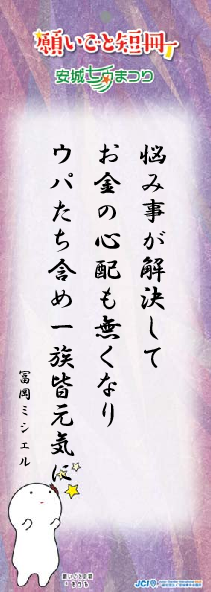 願いごと短冊
安城七夕まつり
悩み事が解決して
お金の心配も無くなり
ウパたち含め一族皆元気に
冨岡ミシェル
JCI